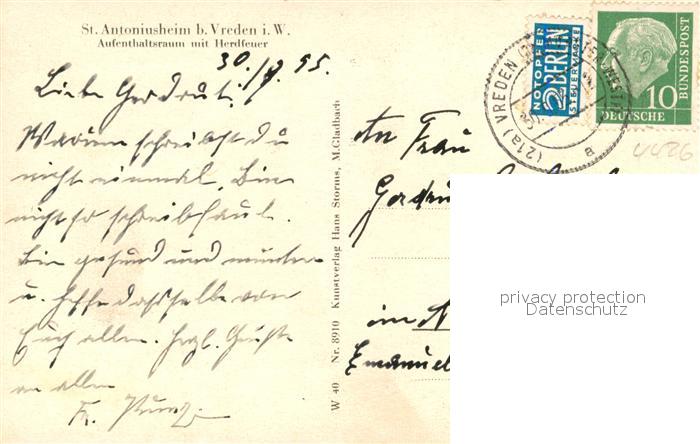 St. Antoniusheim b. Vreden i. W.
Aufenthaltsraum mit Herdfeuer
30. 55.
Liebe Gerdrut!
Warum schreibst du
nicht einmal. Bin
nicht so schreibfaul.
Bin gesund und munter
u. hoffe dasselbe von
Euch allen. Hrzl. Grüße
an allen
Fr.
W 40 Nr. 8910 Kunstverlag Hans Storms, M.Gladbach
NOTOPFER
2 BERLIN
STEUERMARKE
(21a) VREDEN
a
DEUTSCHE
BUNDESPOST
10
4426
An Frau
im
Emanuel
privacy protection
Datenschutz